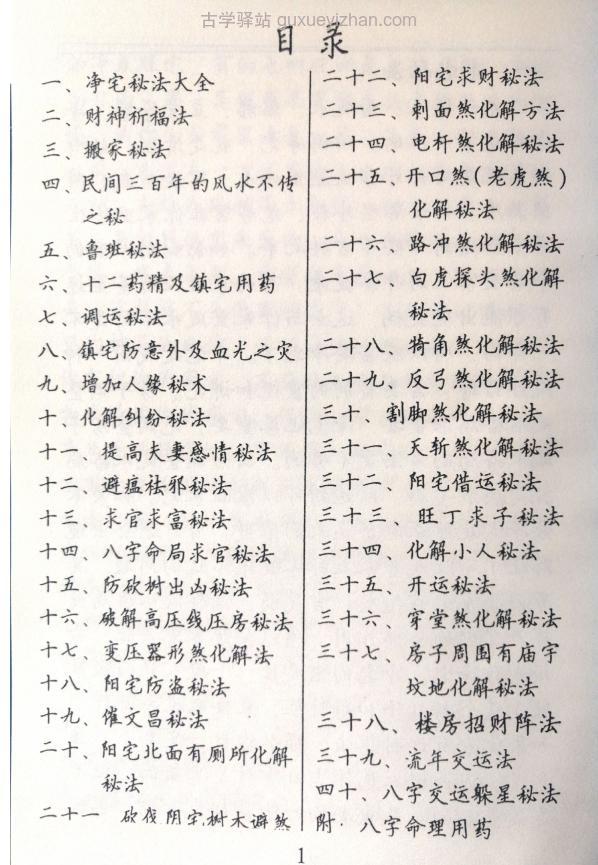 古学驿站 guxueyizhan.com
目录
一、净宅秘法大全
二、财神祈福法
三、搬家秘法
四、民间三百年的风水不传
之秘
五、鲁班秘法
六、十二药精及镇宅用药
七、调运秘法
八、镇宅防意外及血光之灾
九、增加人缘秘术
十、化解纠纷秘法
十一、提高夫妻感情秘法
十二、避瘟祛邪秘法
十三、求官求富秘法
十四、八字命局求官秘法
十五、防砍树出凶秘法
十六、破解高压线压房秘法
十七、变压器形煞化解法
十八、阳宅防盗秘法
十九、催文昌秘法
二十、阳宅北面有厕所化解
秘法
二十一 砍伐阴宅树木避煞
二十二、阳宅求财秘法
二十三、刺面煞化解方法
二十四、电杆煞化解秘法
二十五、开口煞(老虎煞)
化解秘法
二十六、路冲煞化解秘法
二十七、白虎探头煞化解
秘法
二十八、犄角煞化解秘法
二十九、反弓煞化解秘法
三十、割脚煞化解秘法
三十一、天斩煞化解秘法
三十二、阳宅借运秘法
三十三、旺丁求子秘法
三十四、化解小人秘法
三十五、开运秘法
三十六、穿堂煞化解秘法
三十七、房子周围有庙宇
坟地化解秘法
三十八、楼房招财阵法
三十九、流年交运法
四十、八字交运躲星秘法
附·八字命理用药
1